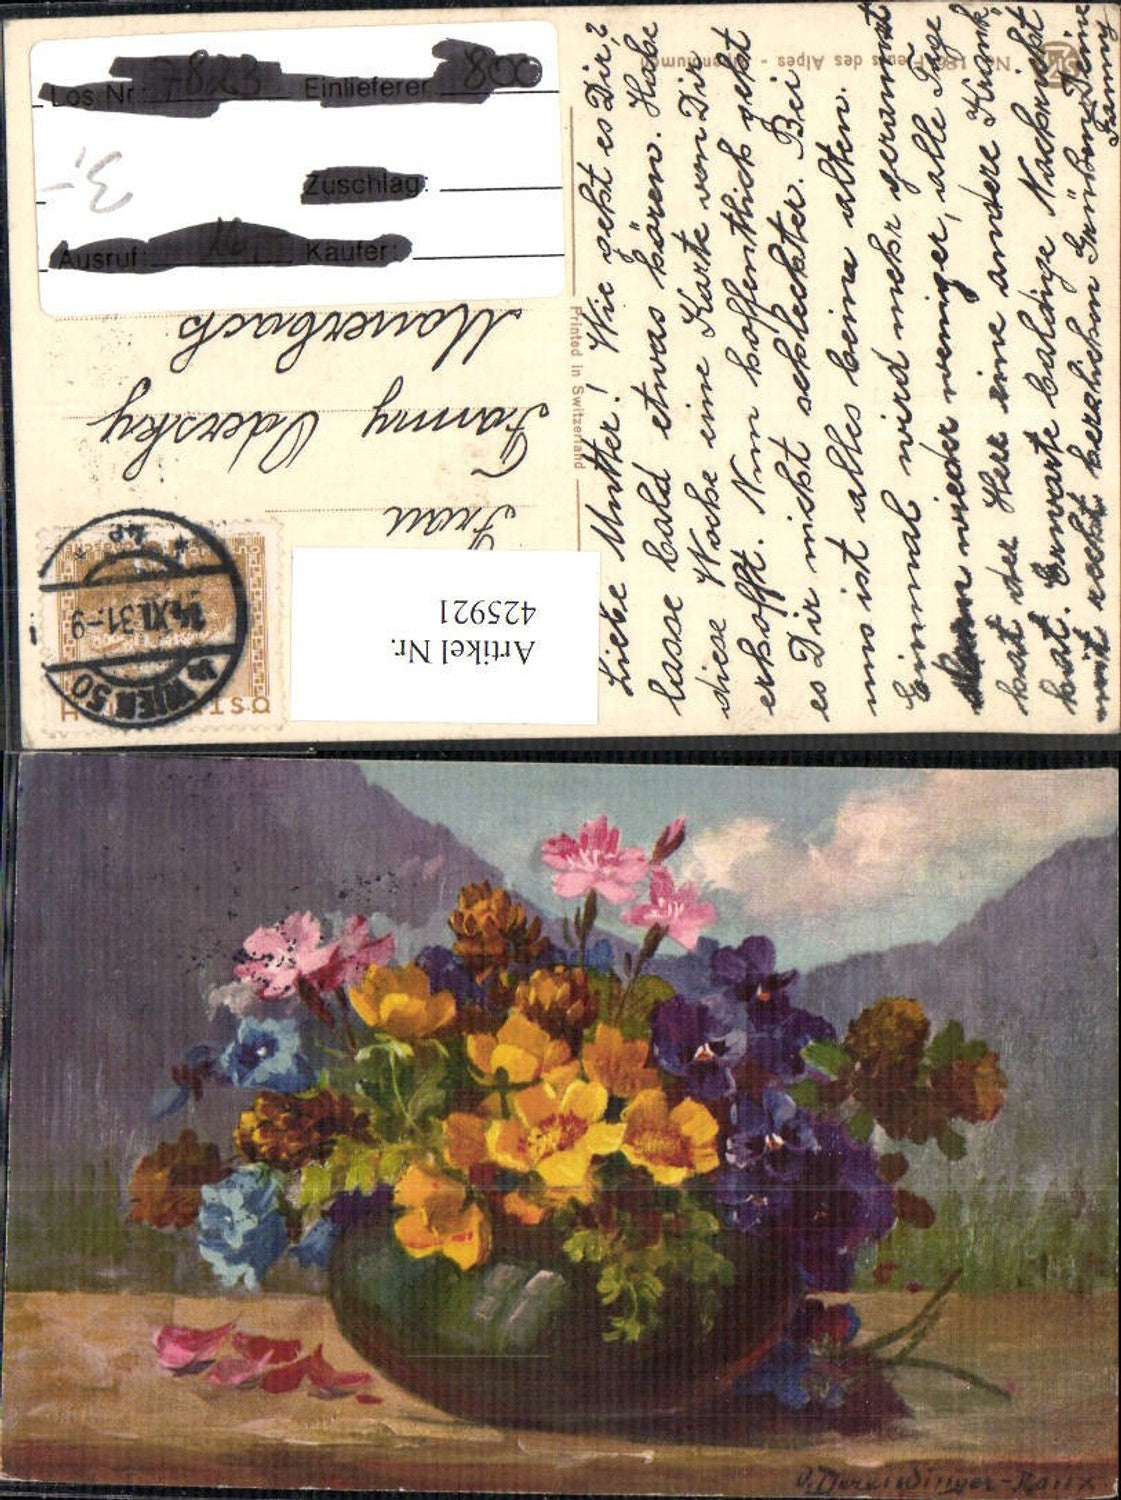 Los Nr.: 7823 Einlieferer: 800
3,-
Zuschlag:
Ausruf: Käufer:
Nr. 186 Fleurs des Alpes - Alpenblumen
Printed in Switzerland
Liebe Mutter! Wie geht es Dir?
lasse bald etwas hören. Habe
diese Woche eine Karte von Dir
erhofft. Nun hoffentlich geht
es Dir nicht schlechter. Bei
uns ist alles beim alten.
Einmal wird mehr geraunzt
wieder weniger, alle Tage
hat der Herr eine andere Krank
heit. Erwarte baldige Nachricht
mit recht herzlichen Grüßen Deine
Fanny
Frau
Fanny Odersky
Mauerbach
WIEN 50
24.XI.31.-9
ÖSTERREICH
Artikel Nr.
425921